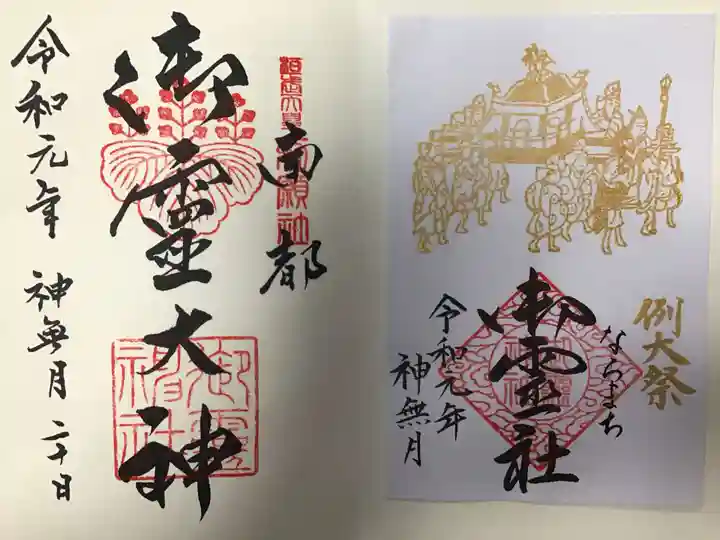 南都
御靈大神
令和元年 神無月 二十日
例大祭
ならまち
御霊社
令和元年
神無月